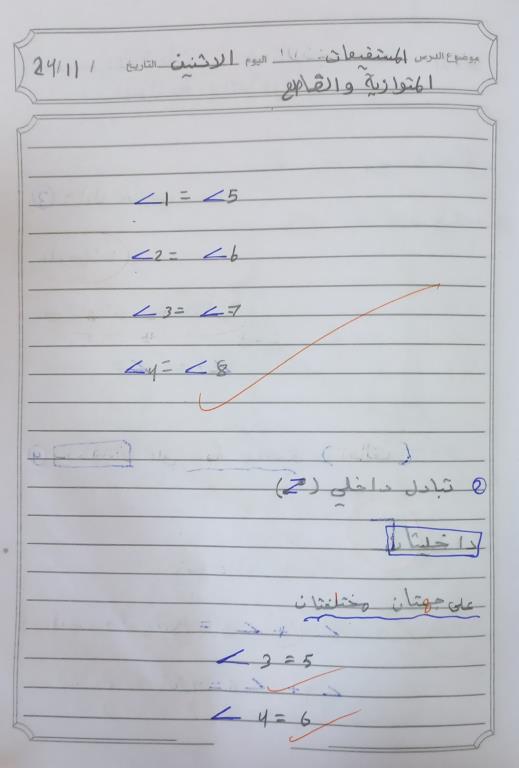 موضوع الدرس المستقيمات اليوم الاثنين التاريخ 24/11/
المتوازية والقاطع
∠1 = ∠5
∠2 = ∠6
∠3 = ∠7
∠4 = ∠8
② تبادل داخلي (Z)
داخليتان
على جهتان مختلفتان
∠3 = 5
∠4 = 6